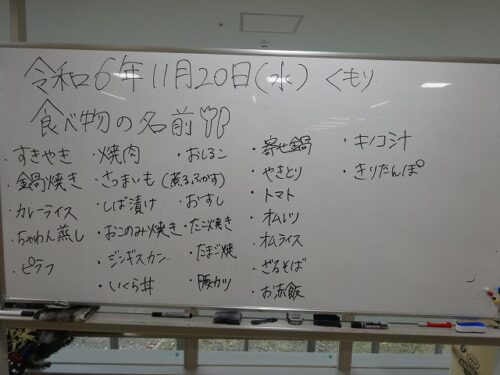 令和6年11月20日(水) くもり
食べ物の名前
・すきやき
・鍋焼き
・カレーライス
・ちゃわん蒸し
・ピラフ
・焼肉
・さつまいも(煮る,ふかす)
・しば漬け
・おこのみ焼き
・ジンギスカン
・いくら丼
・おしるこ
・おすし
・たこ焼き
・たまご焼
・豚カツ
・寄せ鍋
・やきとり
・トマト
・オムレツ
・オムライス
・ざるそば
・お赤飯
・キノコ汁
・きりたんぽ